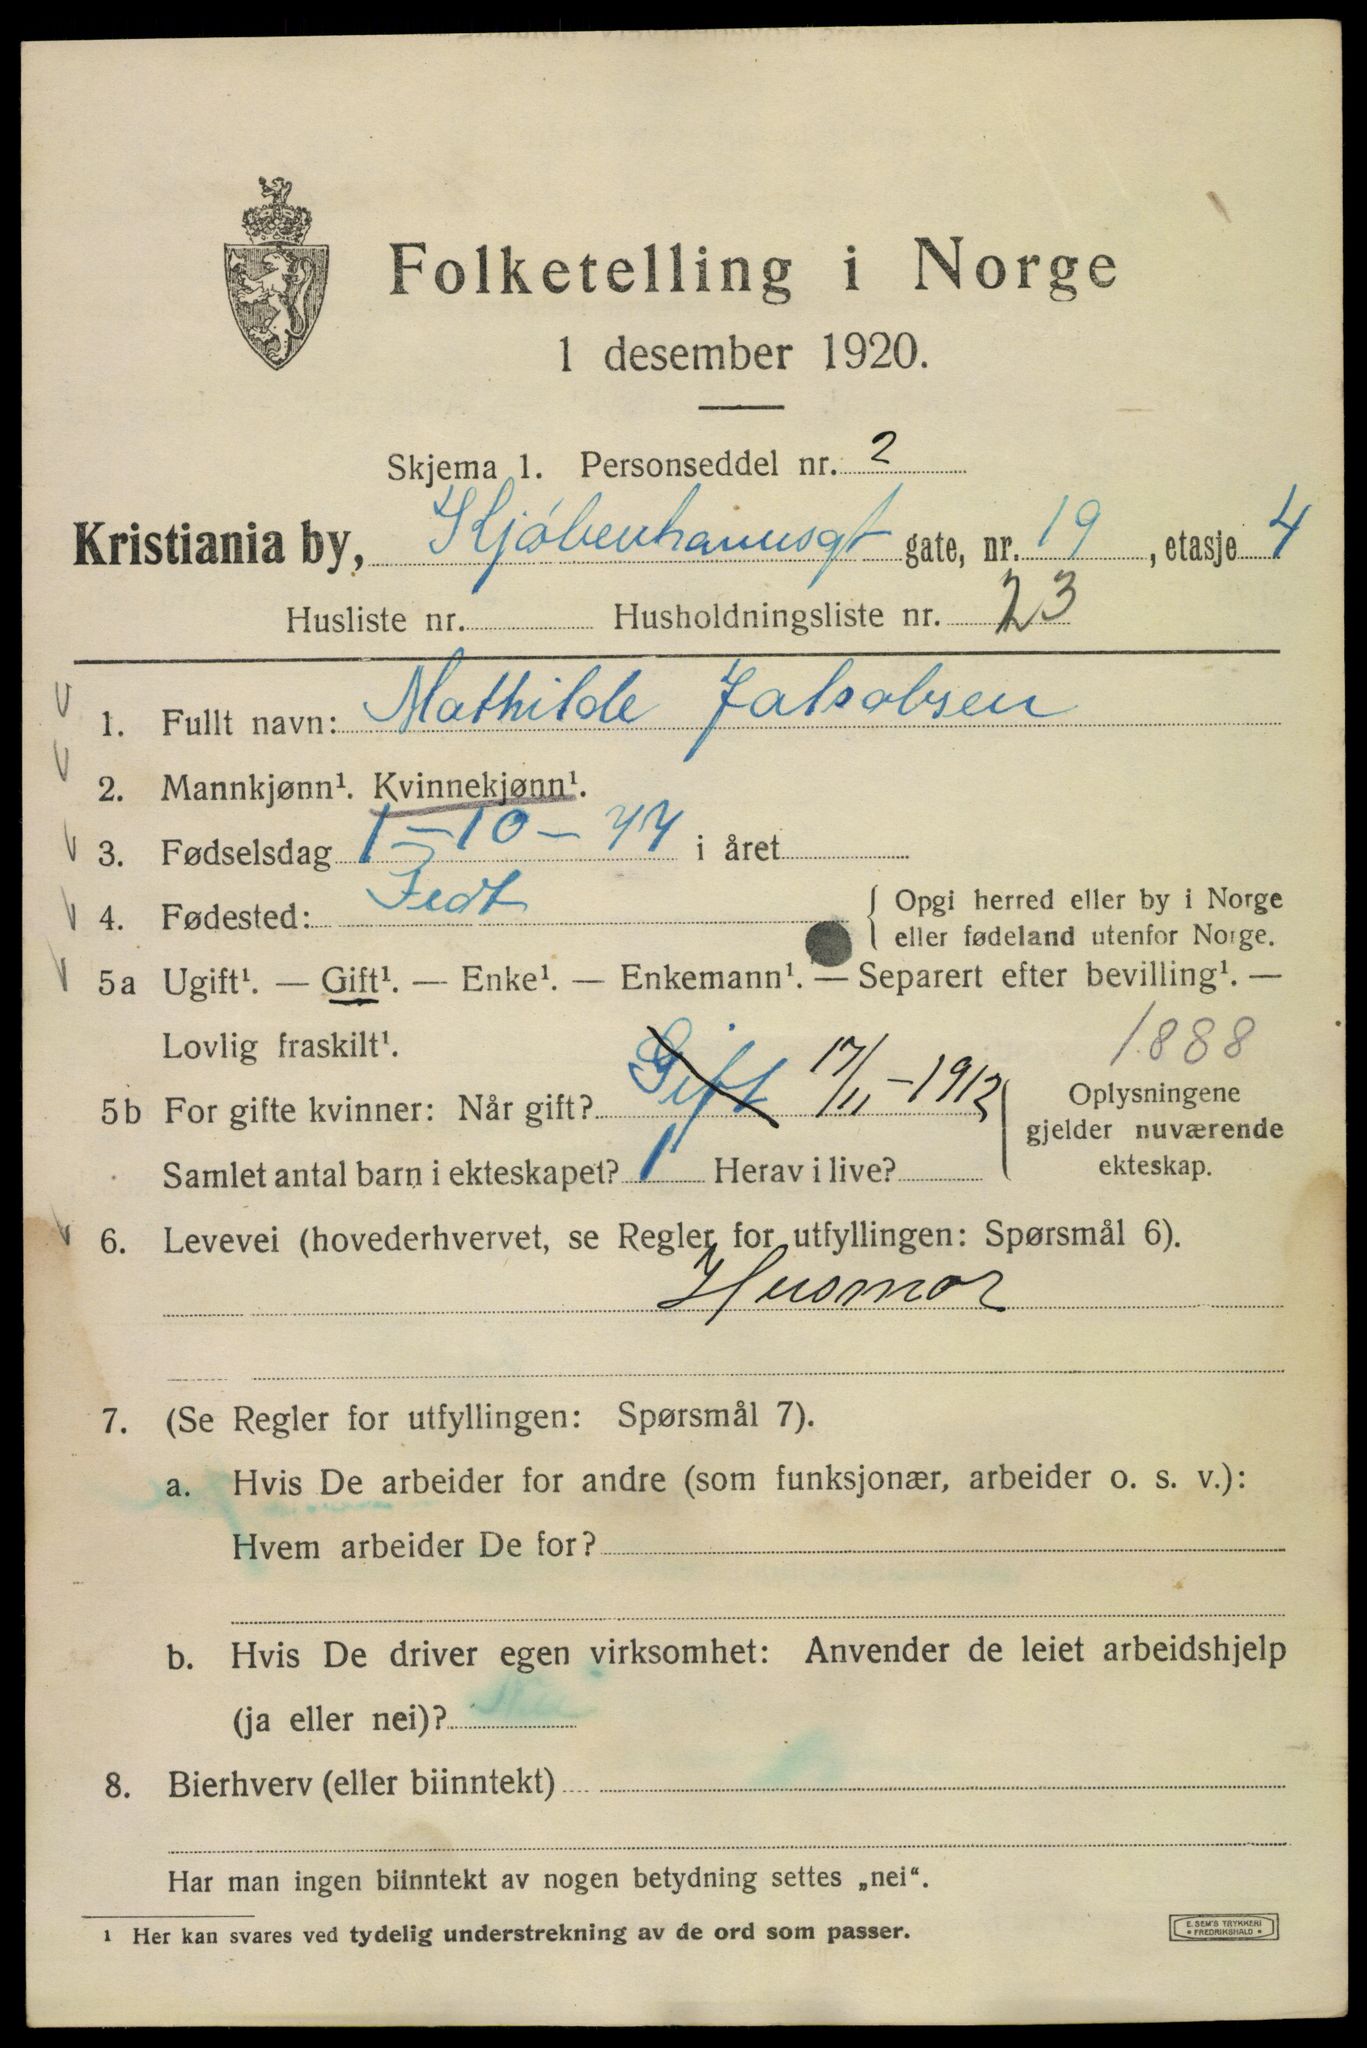 Folketelling i Norge
1 desember 1920.
Skjema 1. Personseddel nr. 2
Kristiania by, Kjøbenhavnsgt gate, nr. 19, etasje 4
Husliste nr. Husholdningsliste nr. 23
1. Fullt navn: Mathilde Jakobsen
2. Mannkjønn¹. Kvinnekjønn¹.
3. Fødselsdag 1-10-77 i året
4. Fødested: Fedt { Opgi herred eller by i Norge
eller fødeland utenfor Norge.
5a Ugift¹. — Gift¹. — Enke¹. — Enkemann¹. — Separert efter bevilling¹. —
Lovlig fraskilt¹. 1888
5b For gifte kvinner: Når gift? Gift 17/11-1912
Samlet antal barn i ekteskapet? 1 Herav i live?
Oplysningene
gjelder nuværende
ekteskap.
6. Levevei (hovederhvervet, se Regler for utfyllingen: Spørsmål 6).
Husmor
7. (Se Regler for utfyllingen: Spørsmål 7).
a. Hvis De arbeider for andre (som funksjonær, arbeider o. s. v.):
Hvem arbeider De for?
b. Hvis De driver egen virksomhet: Anvender de leiet arbeidshjelp
(ja eller nei)? Nei
8. Bierhverv (eller biinntekt)
Har man ingen biinntekt av nogen betydning settes „nei“.
¹ Her kan svares ved tydelig understrekning av de ord som passer.
E. SEM'S TRYKKERI
FREDRIKSHALD